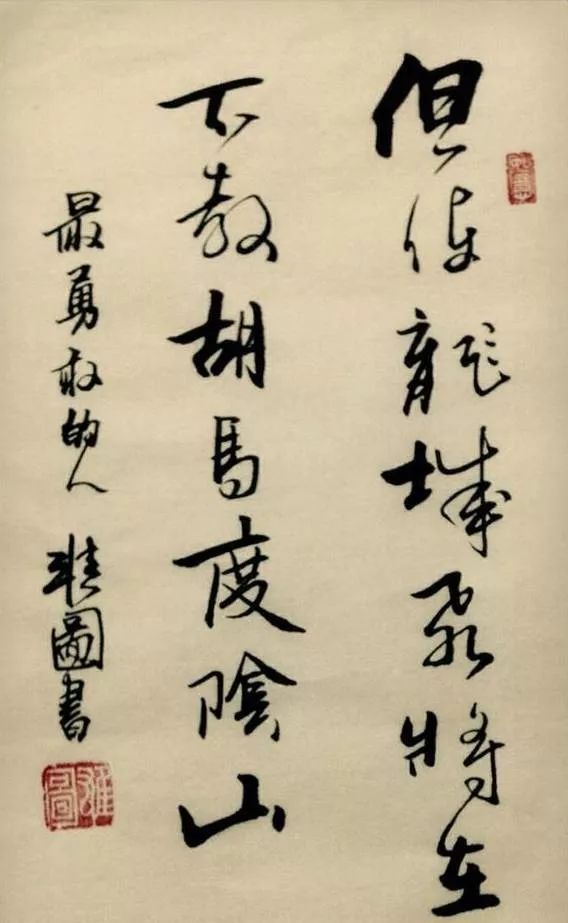 但使龍城飛將在
不教胡馬度陰山
最勇敢的人 雅圖書